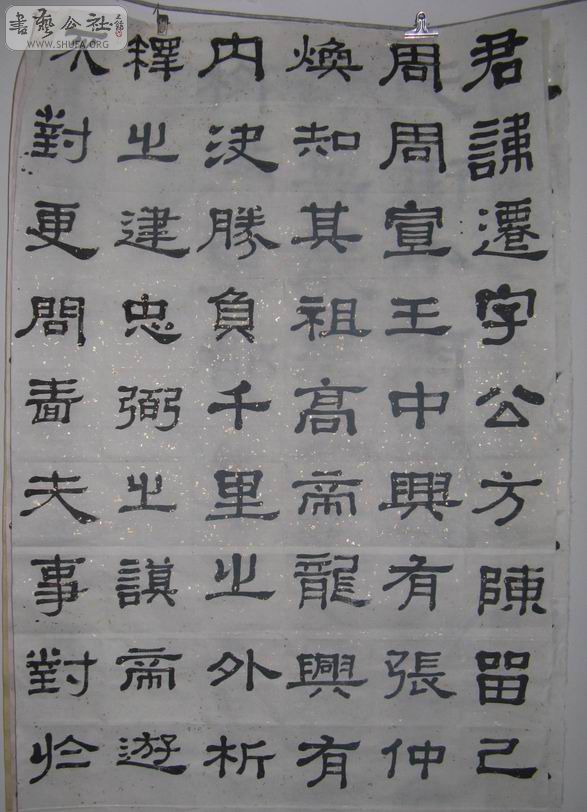 書藝公社
WWW.SHUFA.ORG
君諱遷字公方陳留己
周周宣王中興有張仲
煥知其祖高帝龍興有
内決勝負千里之外析
釋之建忠弼之謨帝遊
不對更問嗇夫事對於